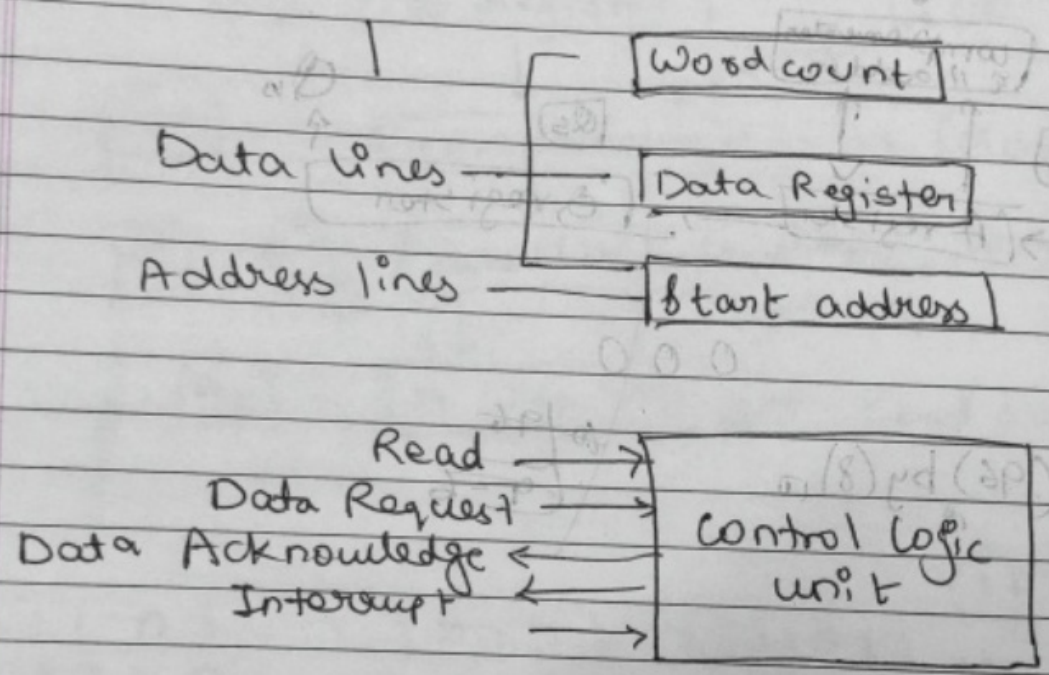 Word count
Data lines
Data Register
Address lines
Start address
Read
Data Request
Data Acknowledge
Interrupt
control logic
unit